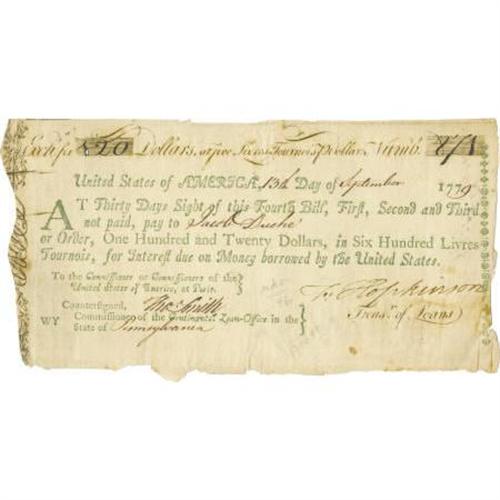 Exch. for 120 Dollars, at five Livres Tournois ⅌ Dollar, Numb. 871
United States of AMERICA, 13th Day of September 1779
AT Thirty Days Sight of this Fourth Bill, First, Second and Third
not paid, pay to Jacob Duché
or Order, One Hundred and Twenty Dollars, in Six Hundred Livres
Tournois, for Interest due on Money borrowed by the United States.
To the Commissioner or Commissioners of the
United States of America, at Paris.
Countersigned, Tho. Smith
Commissioner of the Continental Loan-Office in the
WY State of Pennsylvania
F. Hopkinson
Treasr. of Loans